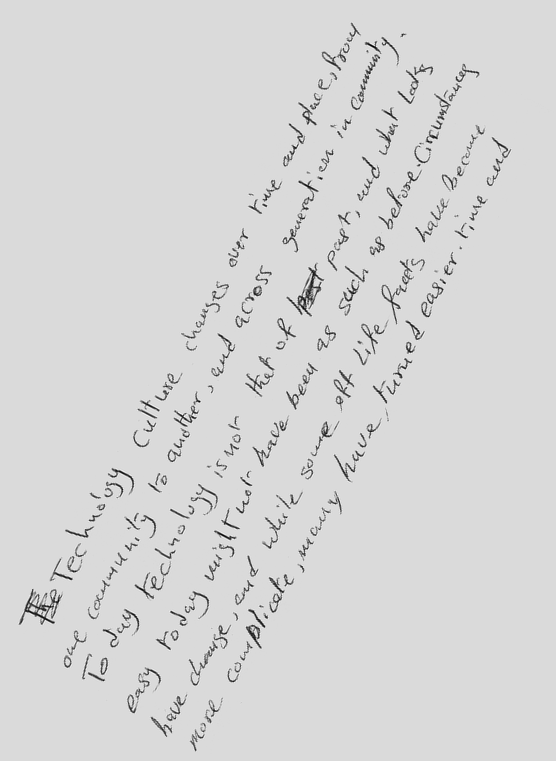 The Technology Culture changes over time and place, from
one community to another, and across generation in community.
Today technology is not that of past past, and what looks
easy today might not have been as such as before. Circumstances
have change, and while some eff Life facts have become
more complicate, many have, turned easier. time and